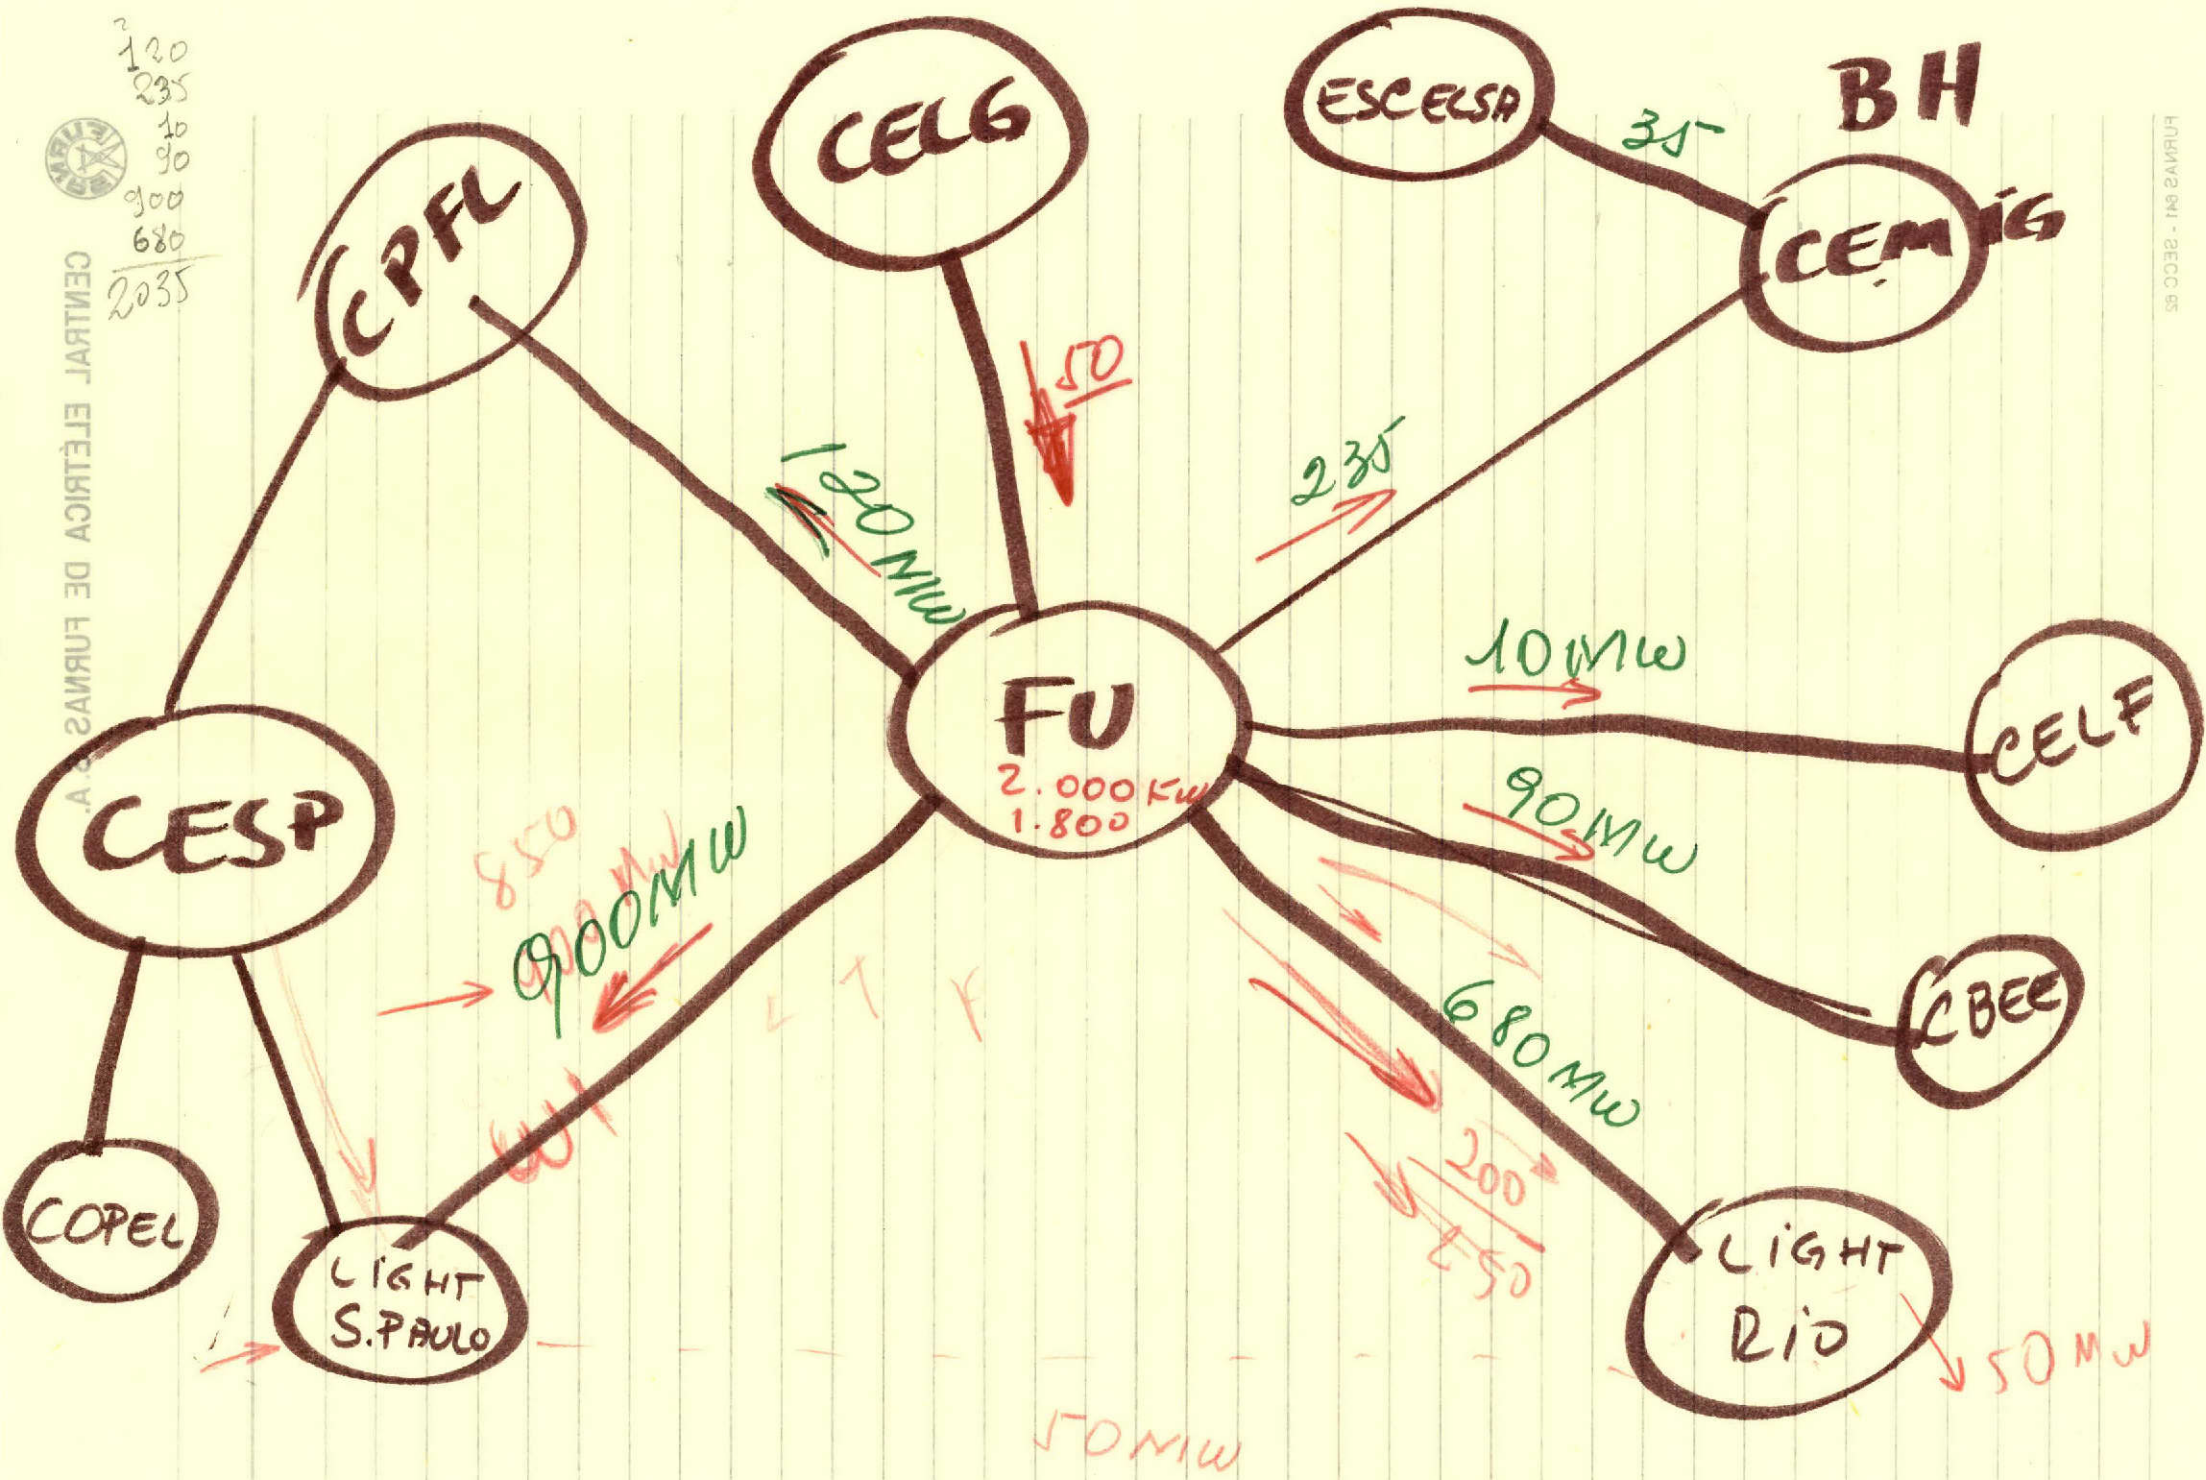 120
235
10
90
900
680
2035
FURNAS
CENTRAL ELÉTRICA DE FURNAS S.A.
CPFL
CELG
ESCELSA
35
BH
CEMIG
50
120MW
235
FU
2.000 KW
1.800
10MW
CELF
CESP
850
900MW
90MW
CBEE
680MW
200
250
COPEL
LIGHT
S.PAULO
LIGHT
RIO
50MW
50MW